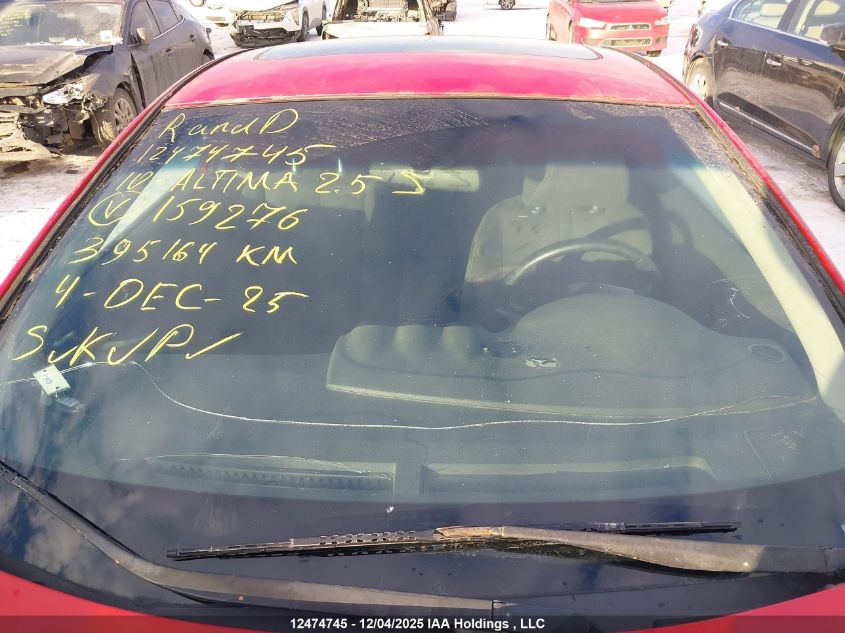 R and D
12474745
10 ALTIMA 2.5 S
V 159276
395164 KM
4-DEC-25
S✓K✓P✓
12474745 - 12/04/2025 IAA Holdings , LLC